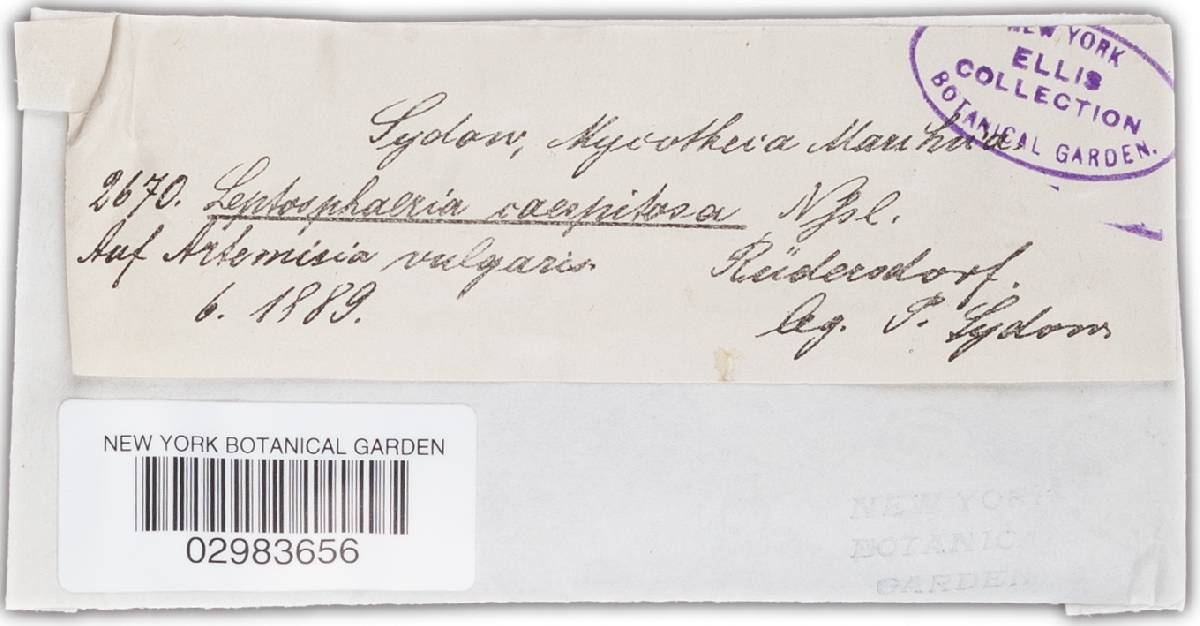 NEW YORK
ELLIS
COLLECTION
BOTANICAL GARDEN.
Sydow, Mycotheca Marchica.
2670. Leptosphaeria caespitosa Nssl.
Auf Artemisia vulgaris Rüdersdorf.
6. 1889. leg. P. Sydow
NEW YORK BOTANICAL GARDEN
02983656
NEW YORK
BOTANICAL
GARDEN